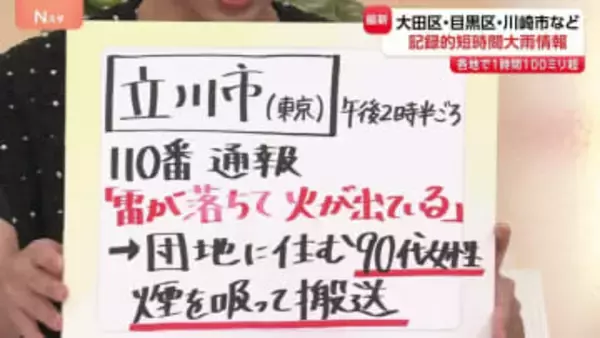 Nスタ
最新
大田区・目黒区・川崎市など
記録的短時間大雨情報
各地で1時間100ミリ超
立川市(東京) 午後2時半ごろ
110番 通報
「雷が落ちて 火が出ている」
→団地に住む90代女性
煙を吸って搬送